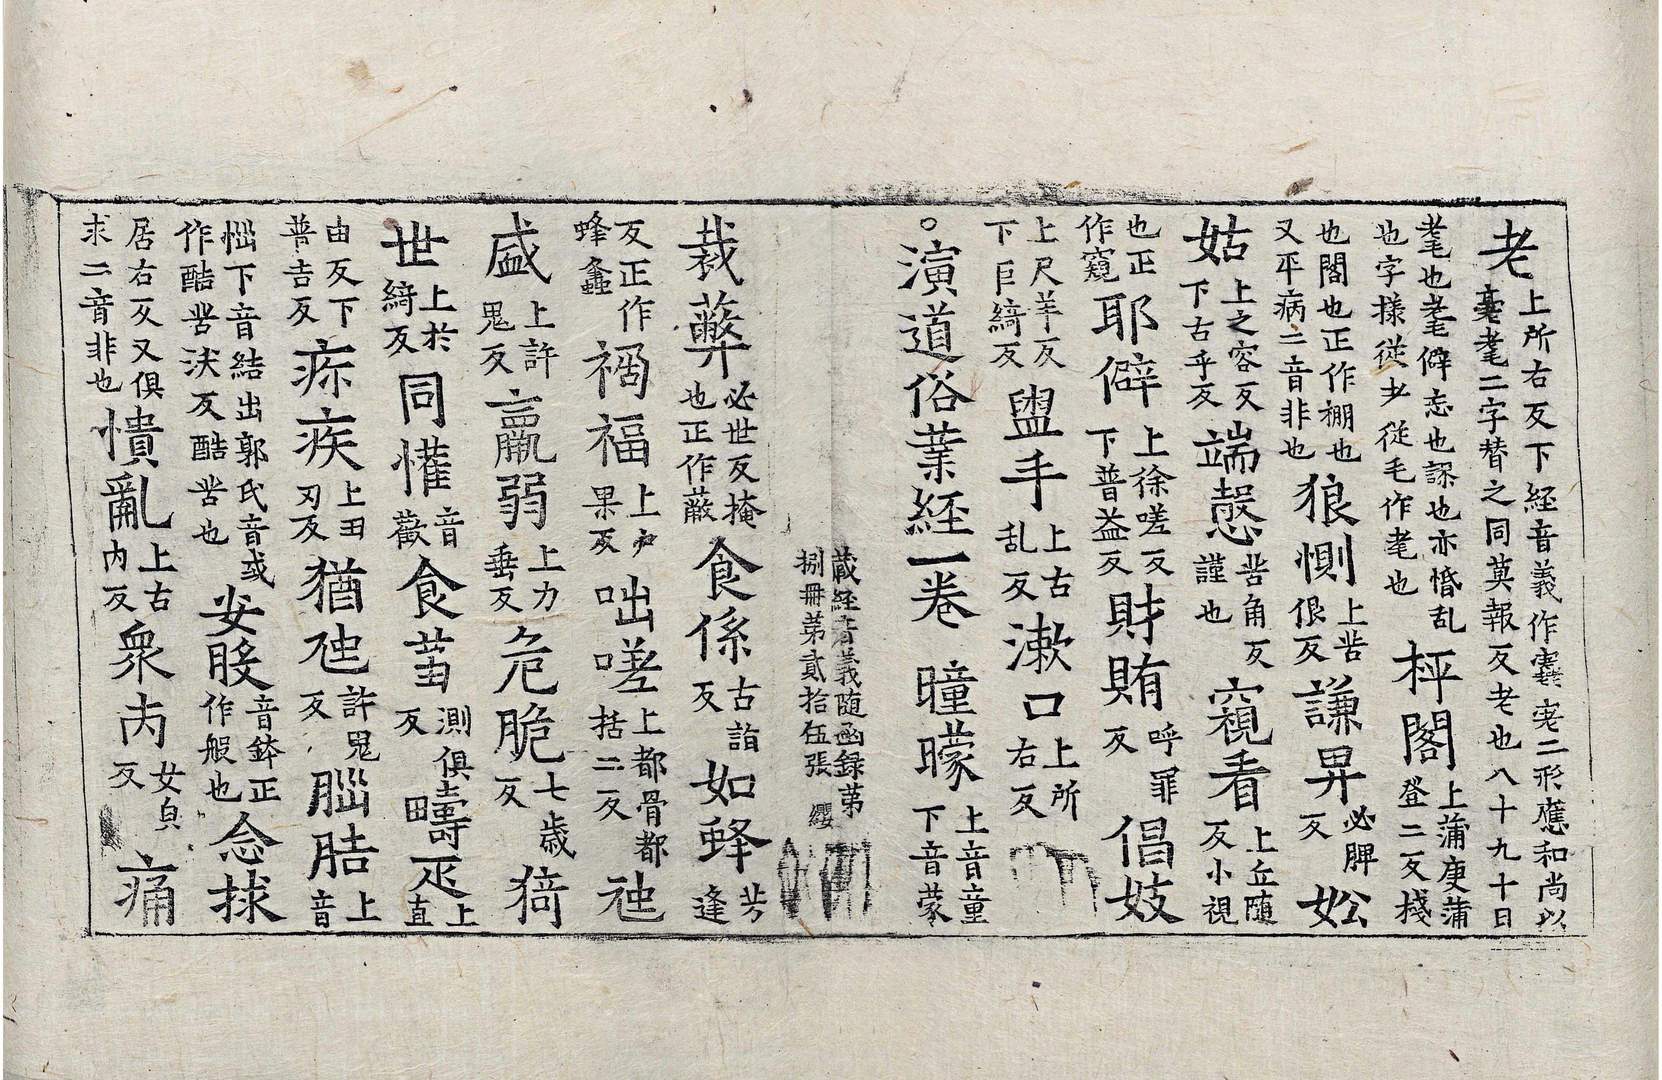 老上所右反下経音義作𡪢㝌二形應和尚以亳耄二字替之同莫報反老也八十九十日
耄也耄僻忘也誤也亦惛乱也字樣従老従毛作耄也枰閣上蒲庚蒲登二反棧
也閣也正作棚也又平病二音非也狼惻上苦佷反謙昇必脾反妐
姑上之容反下古乎反端愨苦角反謹也窺看上丘随反小視
也正作窺耶僻上徐嗟反下普益反財賄呼罪反倡妓
上尺羊反下巨綺反盥手上古乱反漱口上所右反
。演道俗業経一卷曈曚上音童下音蒙
蔵経音義随函録第捌冊第貳拾伍張纓
栽虊必世反掩也正作蔽食係古詣反如蜂芳逢
反正作蜂螽禍福上戸果反咄嗟上都骨都括二反祂
盛上許鬼反羸弱上力垂反危脆七歳反猗
世上於綺反同懽音歡食蒭測俱反疇疋上直
由反下普吉反疢疾上丑刃反猶虺許鬼反腦䏦上音
惱下音結出郭氏音或作酷苦浃反酷苦也安肞音鉢正作般也念捄
居右反又俱求二音非也憒亂上古内反衆㐫女貞反痛